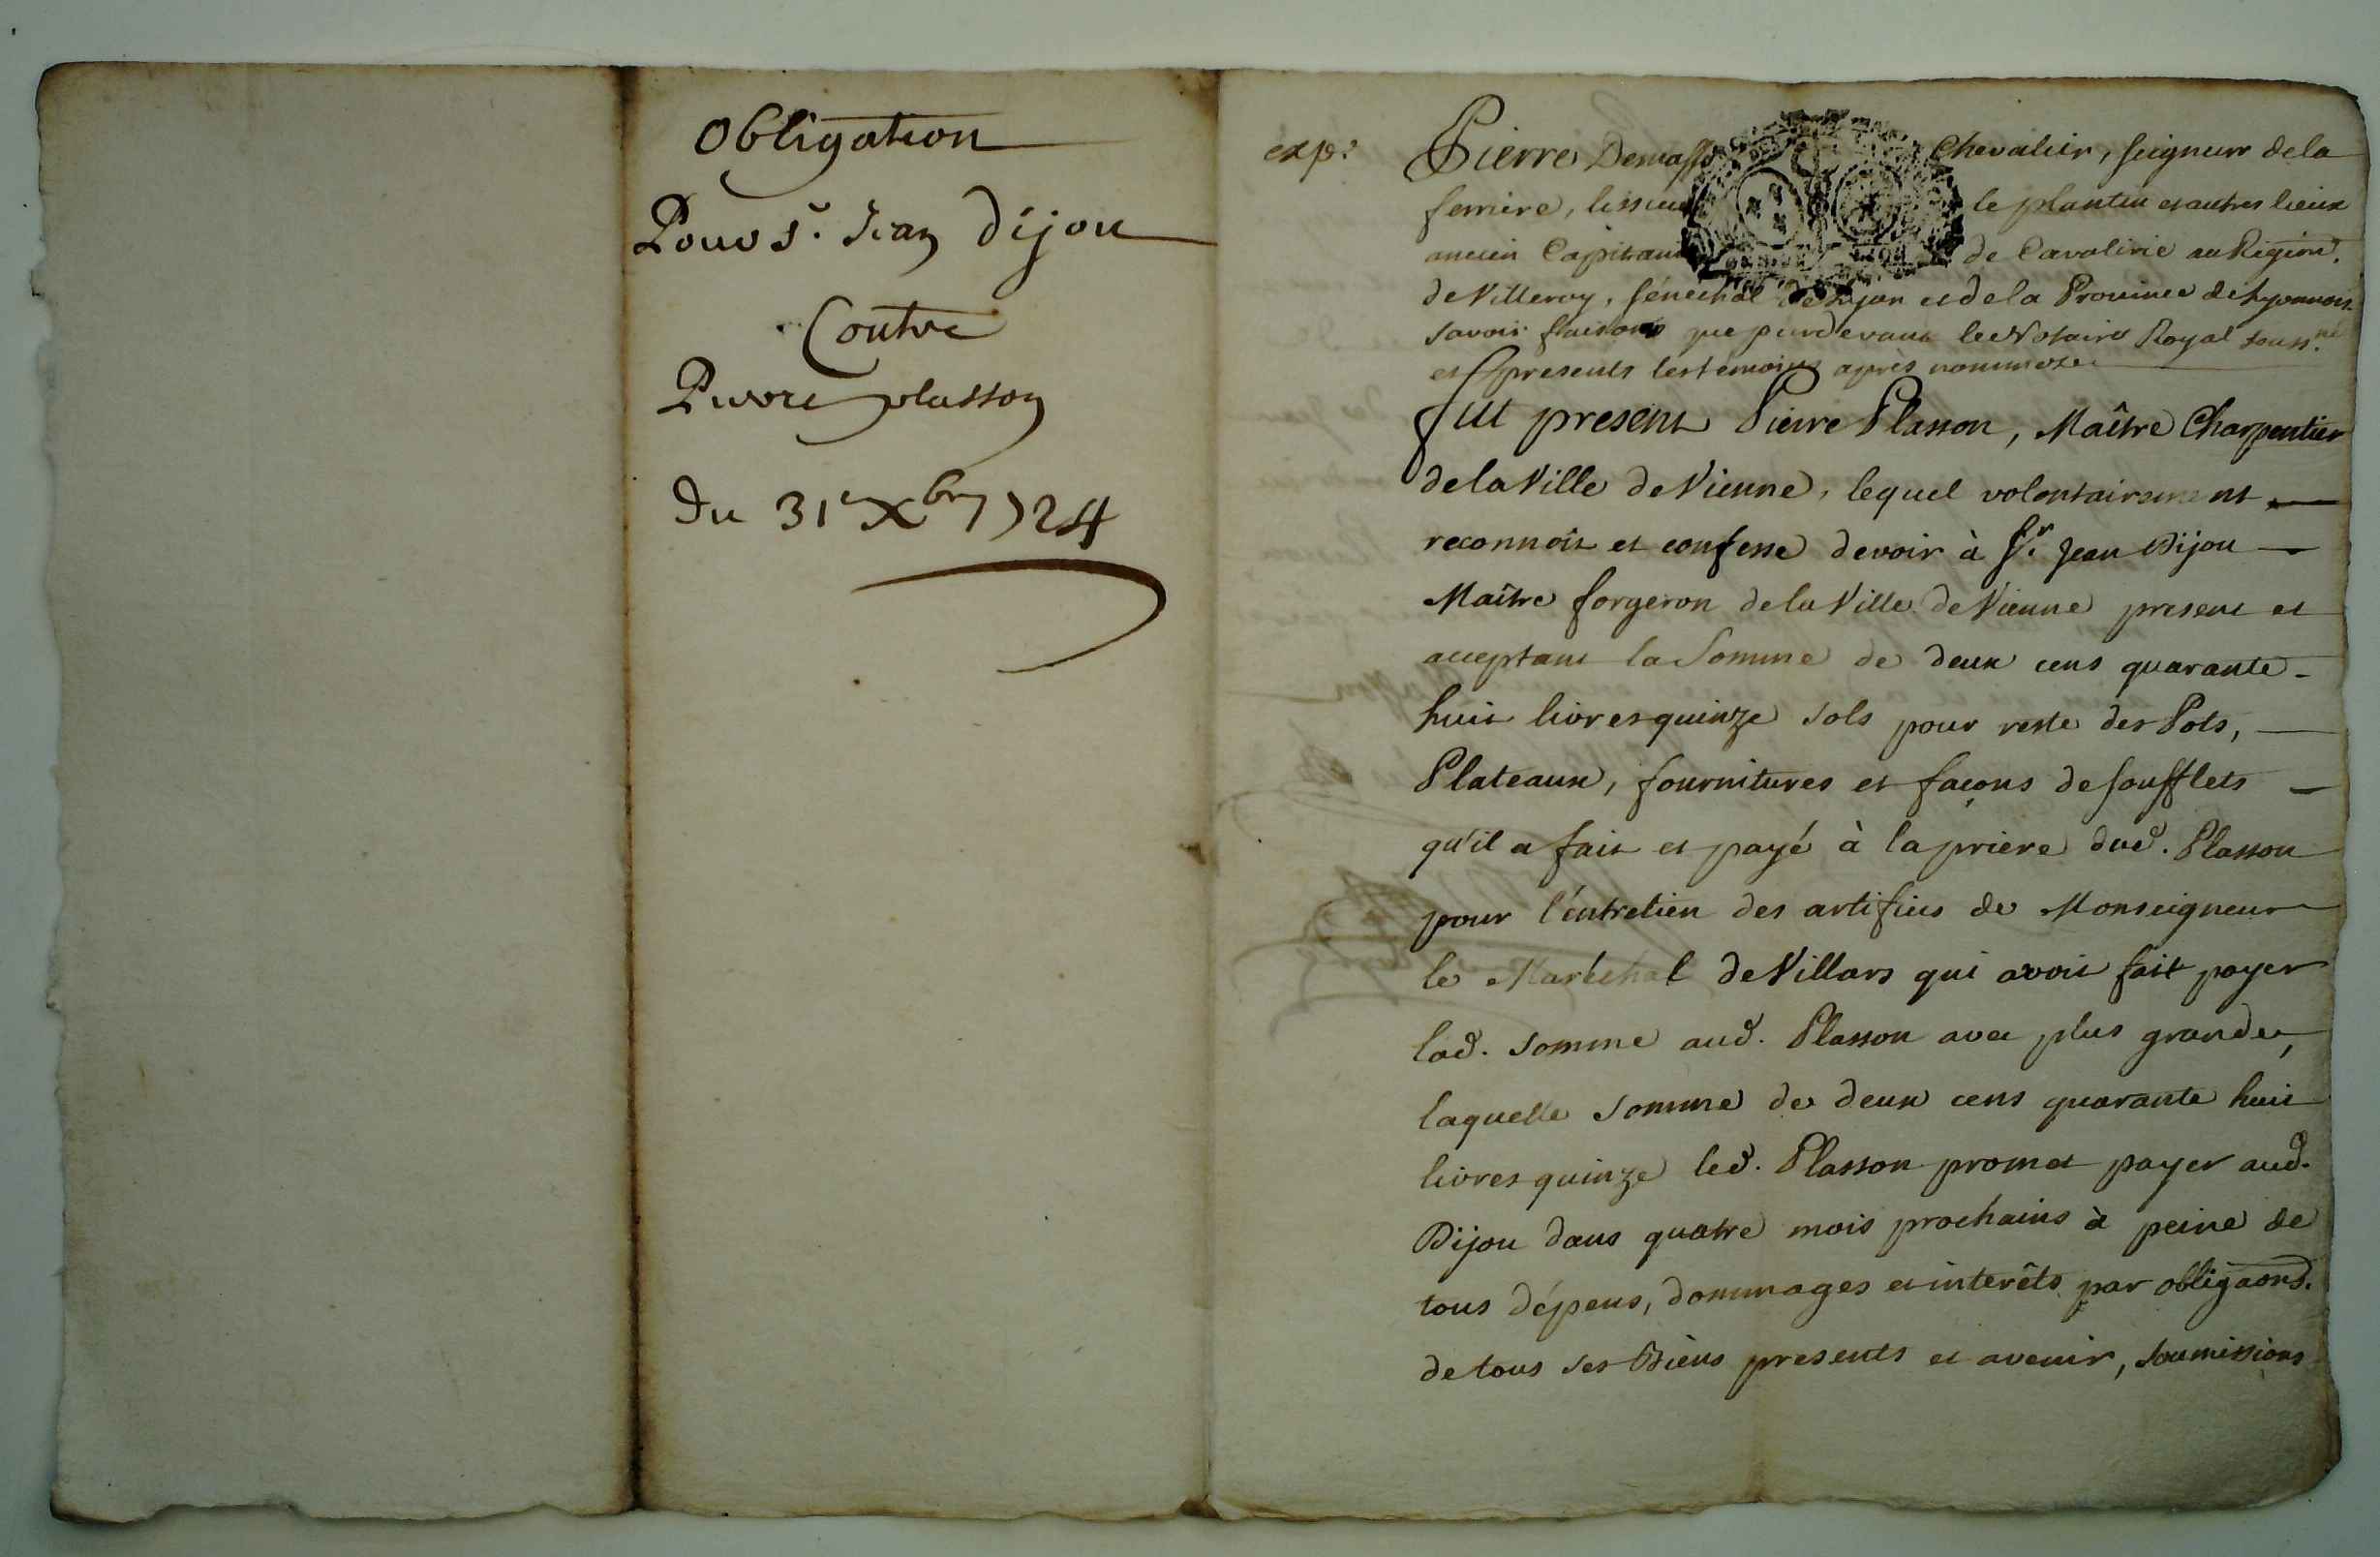 Obligation
Pour Sr. Jean Dijon
Contre
Pierre plasson
Du 31e Xbre 1724
exp.
Pierre Demasso Chevalier, seigneur dela
ferriere, lissieu le plantin et autres lieux
ancien Capitaine de Cavalerie au Regimt.
de Villeroy, sénéchal de Lyon et dela Province de Lyonnois
savoir faisons que pardevant le Notaire Royal souss.né
et presents les temoins après nommez
fut present Pierre Plasson, Maître Charpentier
dela Ville de Vienne, lequel volontairement
reconnoit et confesse devoir à Sr. Jean Dijon
Maître forgeron dela Ville de Vienne present et
acceptant la Somme de deux cens quarante-
huit livres quinze sols pour reste des Pots,
Plateaux, fournitures et façons de soufflets
qu'il a fait et payé à la priere dud. Plasson
pour l'entretien des artifices de Monseigneur
le Maréchal de Villars qui avoit fait payer
lad. somme aud. Plasson avec plus grande,
laquelle somme de deux cens quarante huit
livres quinze led. Plasson promet payer aud.
Dijon dans quatre mois prochains à peine de
tous dépens, dommages et interêts par obligaons.
de tous ses Biens presents et avenir, soumissions